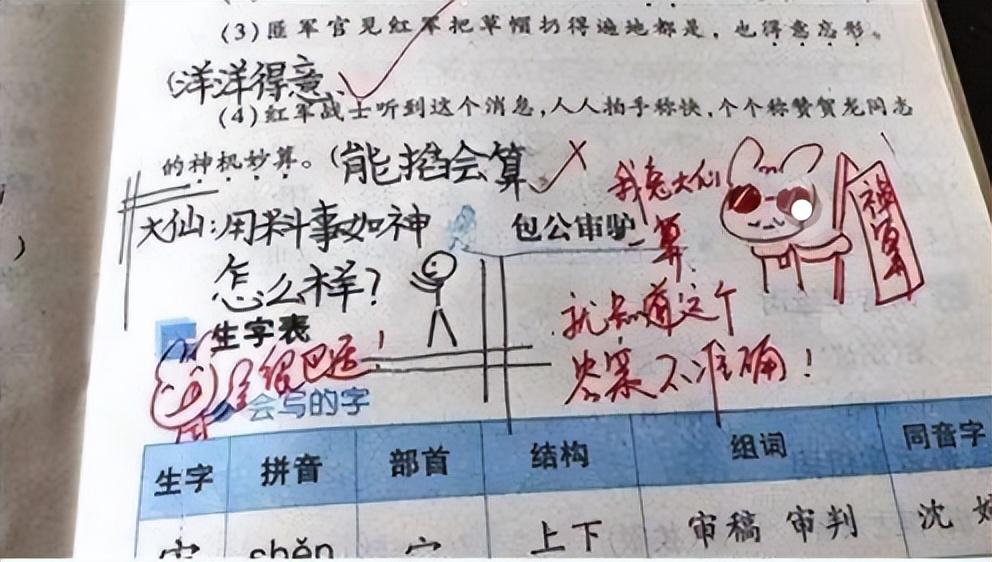 (3)匪军官见红军把草帽扔得遍地都是，也得意忘形。
(洋洋得意、
(4)红军战士听到这个消息,人人拍手称快,个个称赞贺龙同志
的神机妙算。(能掐会算
我兔大仙
一算
祸算
大仙:用料事如神
怎么样?
包公审驴
就知道这个
答案不准确!
生字表
会写的字
生字 拼音 部首 结构 组词 同音字
shěn 宀 上下 审稿 审判 沈